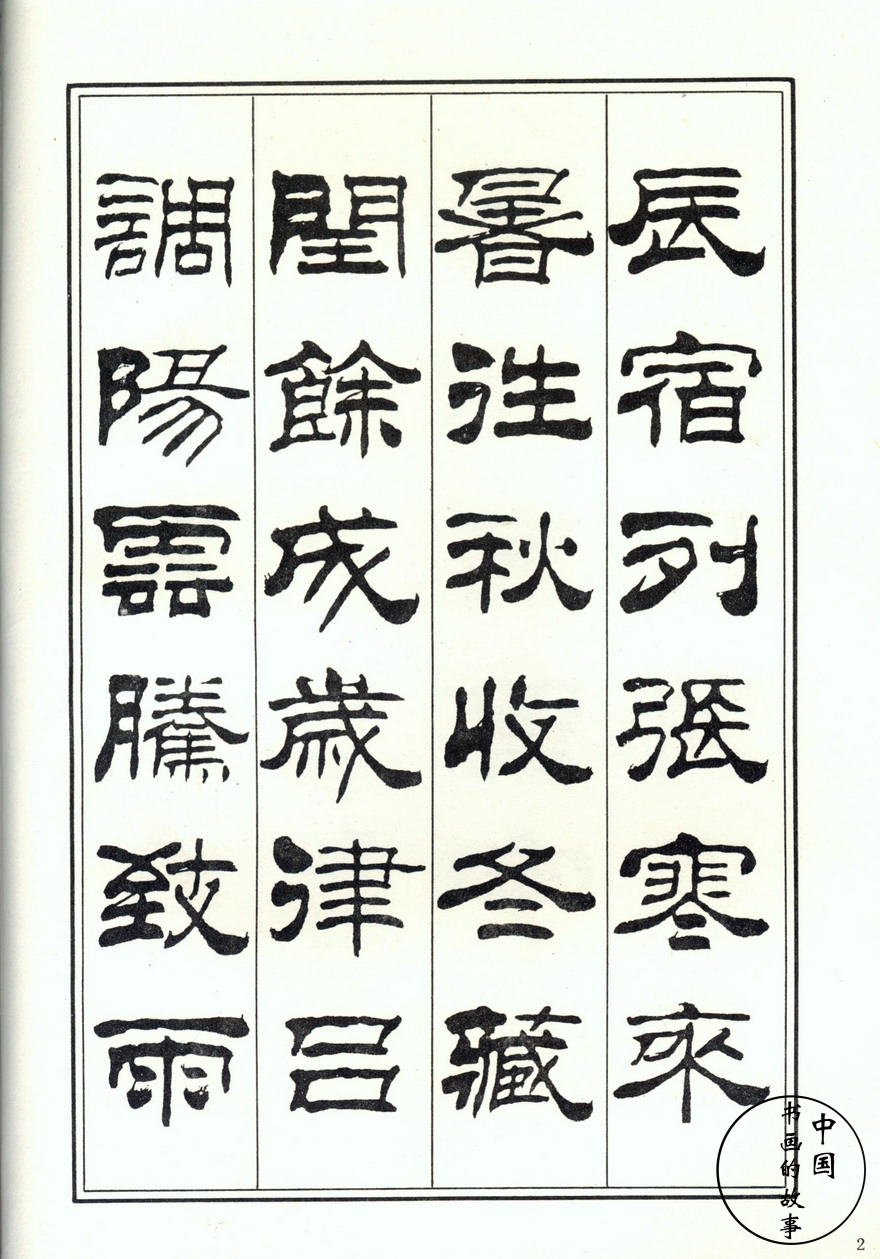 辰宿列張寒來
暑往秋收冬藏
閏餘成歲律呂
調陽雲騰致雨
中国
书画的故事
2